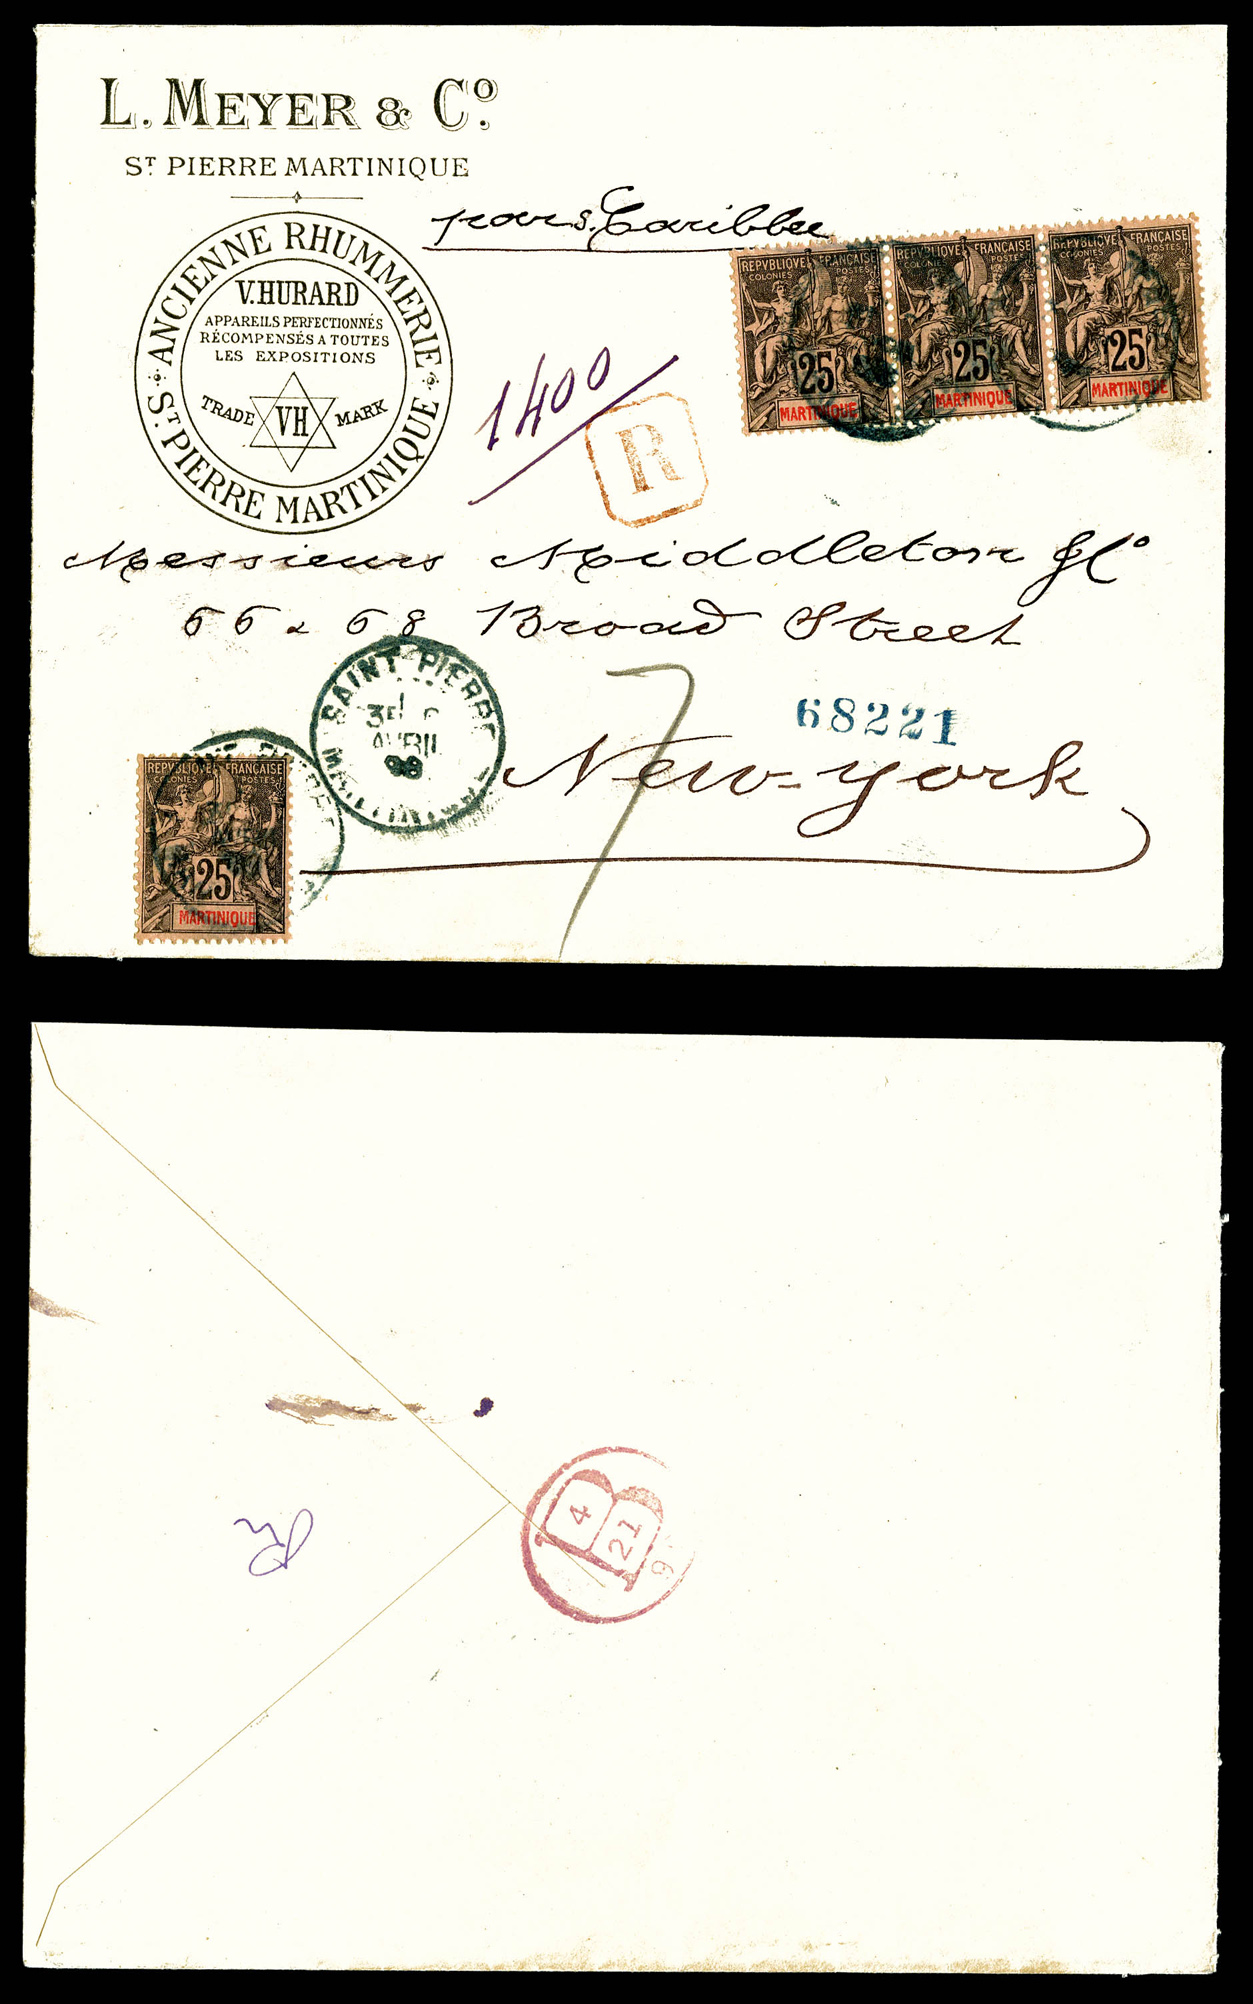 L. MEYER & Cº.
Sᵀ PIERRE MARTINIQUE
par s. Caribbee
ANCIENNE RHUMMERIE
V. HURARD
APPAREILS PERFECTIONNÉS
RÉCOMPENSÉS A TOUTES
LES EXPOSITIONS
TRADE VH MARK
Sᵀ PIERRE MARTINIQUE
REPVBLIQVE FRANÇAISE
COLONIES POSTES
25
MARTINIQUE
REPVBLIQVE FRANÇAISE
COLONIES POSTES
25
MARTINIQUE
REPVBLIQVE FRANÇAISE
COLONIES POSTES
25
MARTINIQUE
1400
R
Messieurs Middleton & Cº
66 & 68 Broad Street
68221
New-York
7
SAINT-PIERRE
3E
AVRIL
98
REPVBLIQVE FRANÇAISE
COLONIES POSTES
25
MARTINIQUE
4
21
9